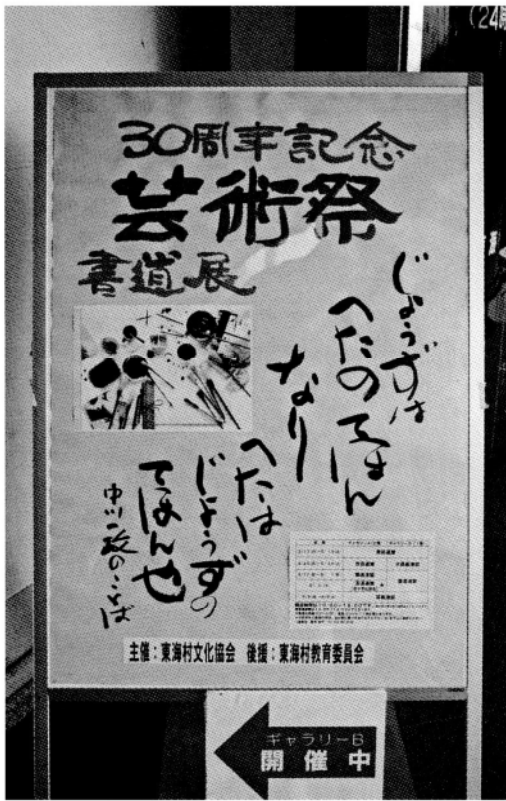 30周年記念
芸術祭
書道展
じょうずは
へたのてほん
なり
へたは
じょうずの
てほん也
中川一政のことば
主催：東海村文化協会 後援：東海村教育委員会
ギャラリーB
開催中